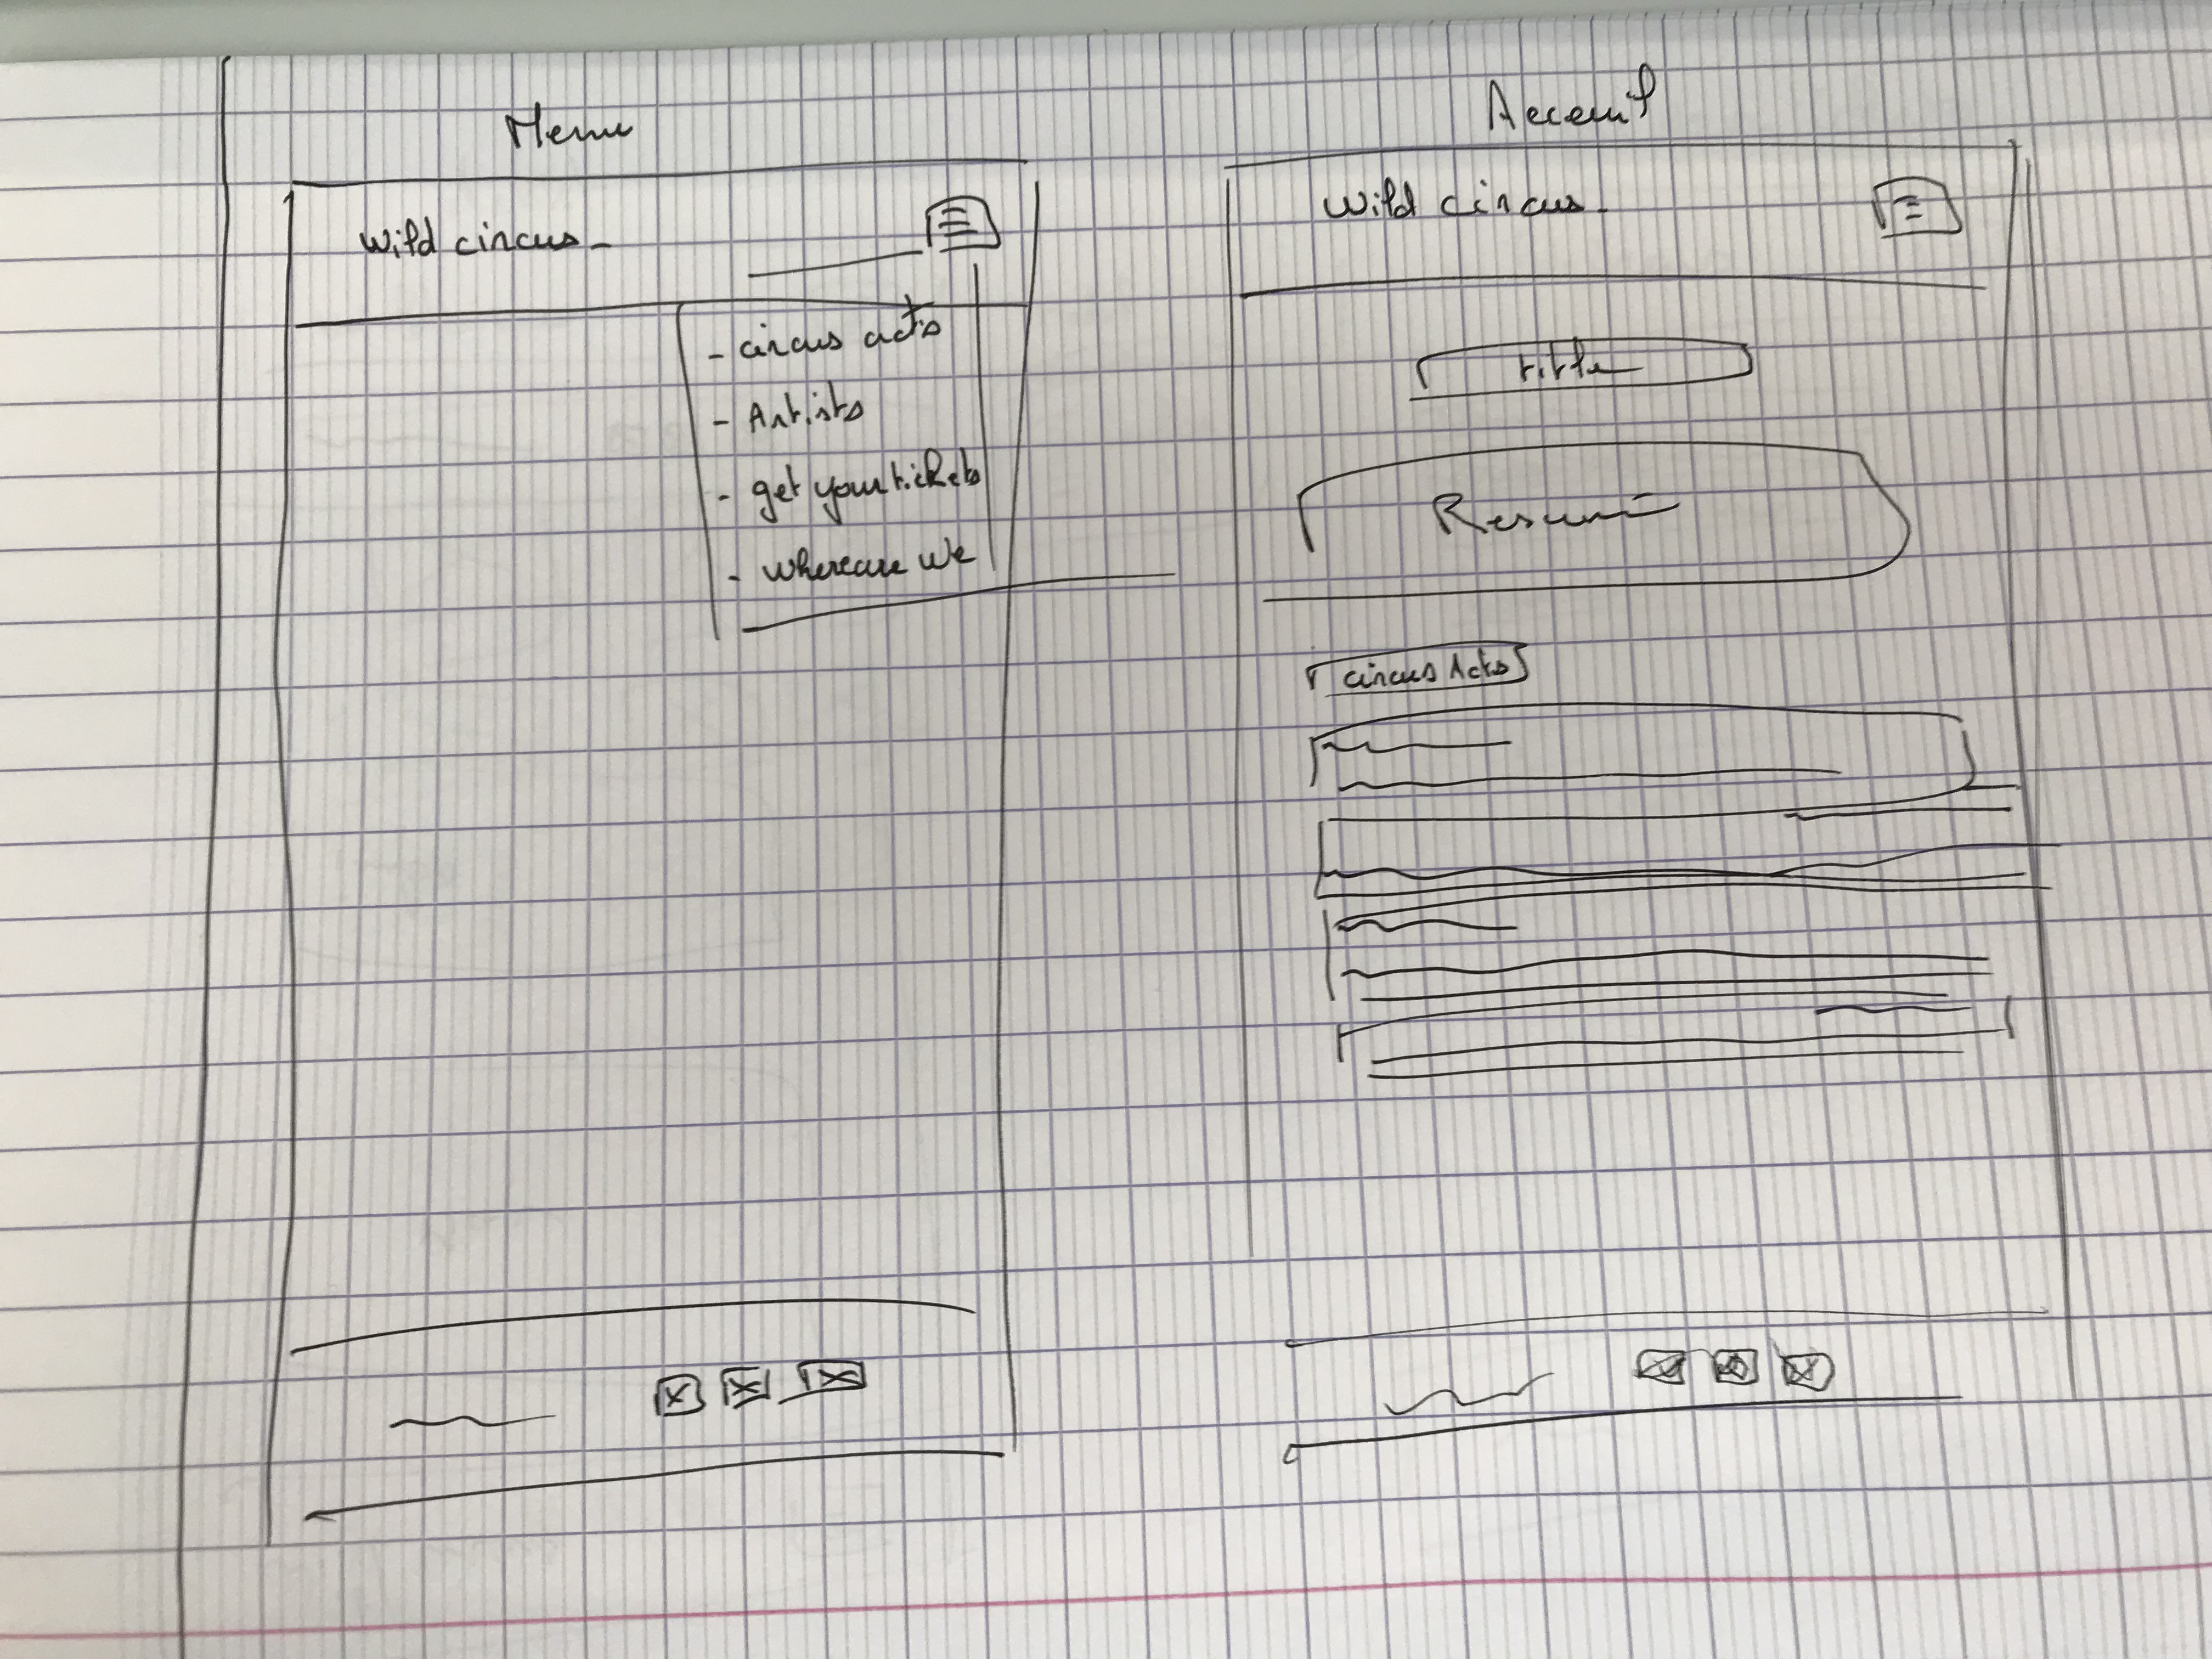 Menu
Wild circus
- circus acts
- Artists
- get your tickets
- where are we
Acceuil
Wild circus
title
Resumé
circus Acts